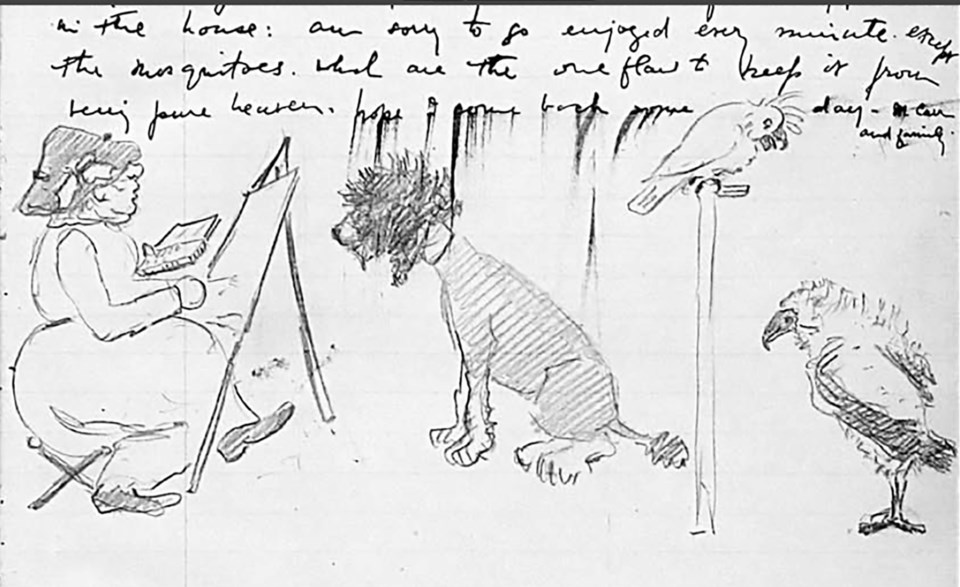 in the house: am sorry to go enjoyed every minute. except
the mosquitoes. which are the one flaw to keep it from
being pure heaven. hope I come back some day -
and family.